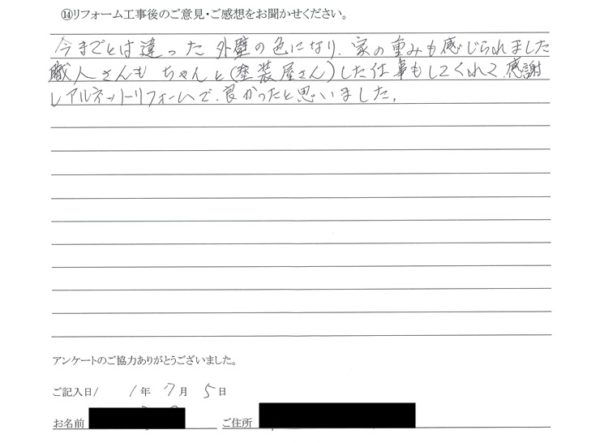 ⑭リフォーム工事後のご意見・ご感想をお聞かせください。
今までとは違った外壁の色になり、家の重みも感じられました
職人さんも ちゃんと(塗装屋さん)した仕事もしてくれて、感謝
レアルネットリフォームで、良かったと思いました。
アンケートのご協力ありがとうございました。
ご記入日/ /年 7月 5日
お名前 ご住所